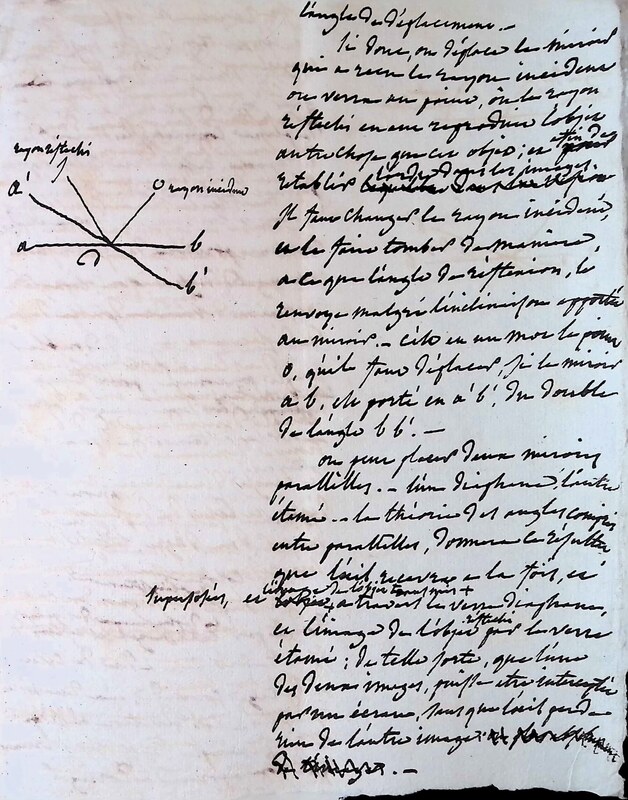 l'angle de déplacement. —
Si donc, on déplace le miroir
qui a recu le rayon incident
on verra au point, où le rayon
réflechi en une reproduit l'objet
autre chose que cet objet; et afin de
rétablir l'ordre dans les images
Il faut changer le rayon incident,
et le faire tomber de maniere,
a ce que l'angle de réflexion, le
renvoye malgré l'inclinaison apportée
au miroir. — c'est en un mot le point
o, qu'il faut déplacer, si le miroir
a b, est porté en a' b', du double
de l'angle b b'. —
on peut placer deux miroirs
paralleles. — l'un diaphane l'autre
étamé. — la théorie des angles compris
entre paralleles, donnera ce résultat
que l'œil recevra a la fois, et
superposés, et l'image de l'objet transmis +
a travers le verre diaphane,
et l'image de l'objet réflechi par le verre
étamé; de telle sorte, que l'une
des deux images, puisse etre interceptée
par un écran, sans que l'œil perde
rien de l'autre image
. —
rayon réflechi
o rayon incident
a'
a
b
b'